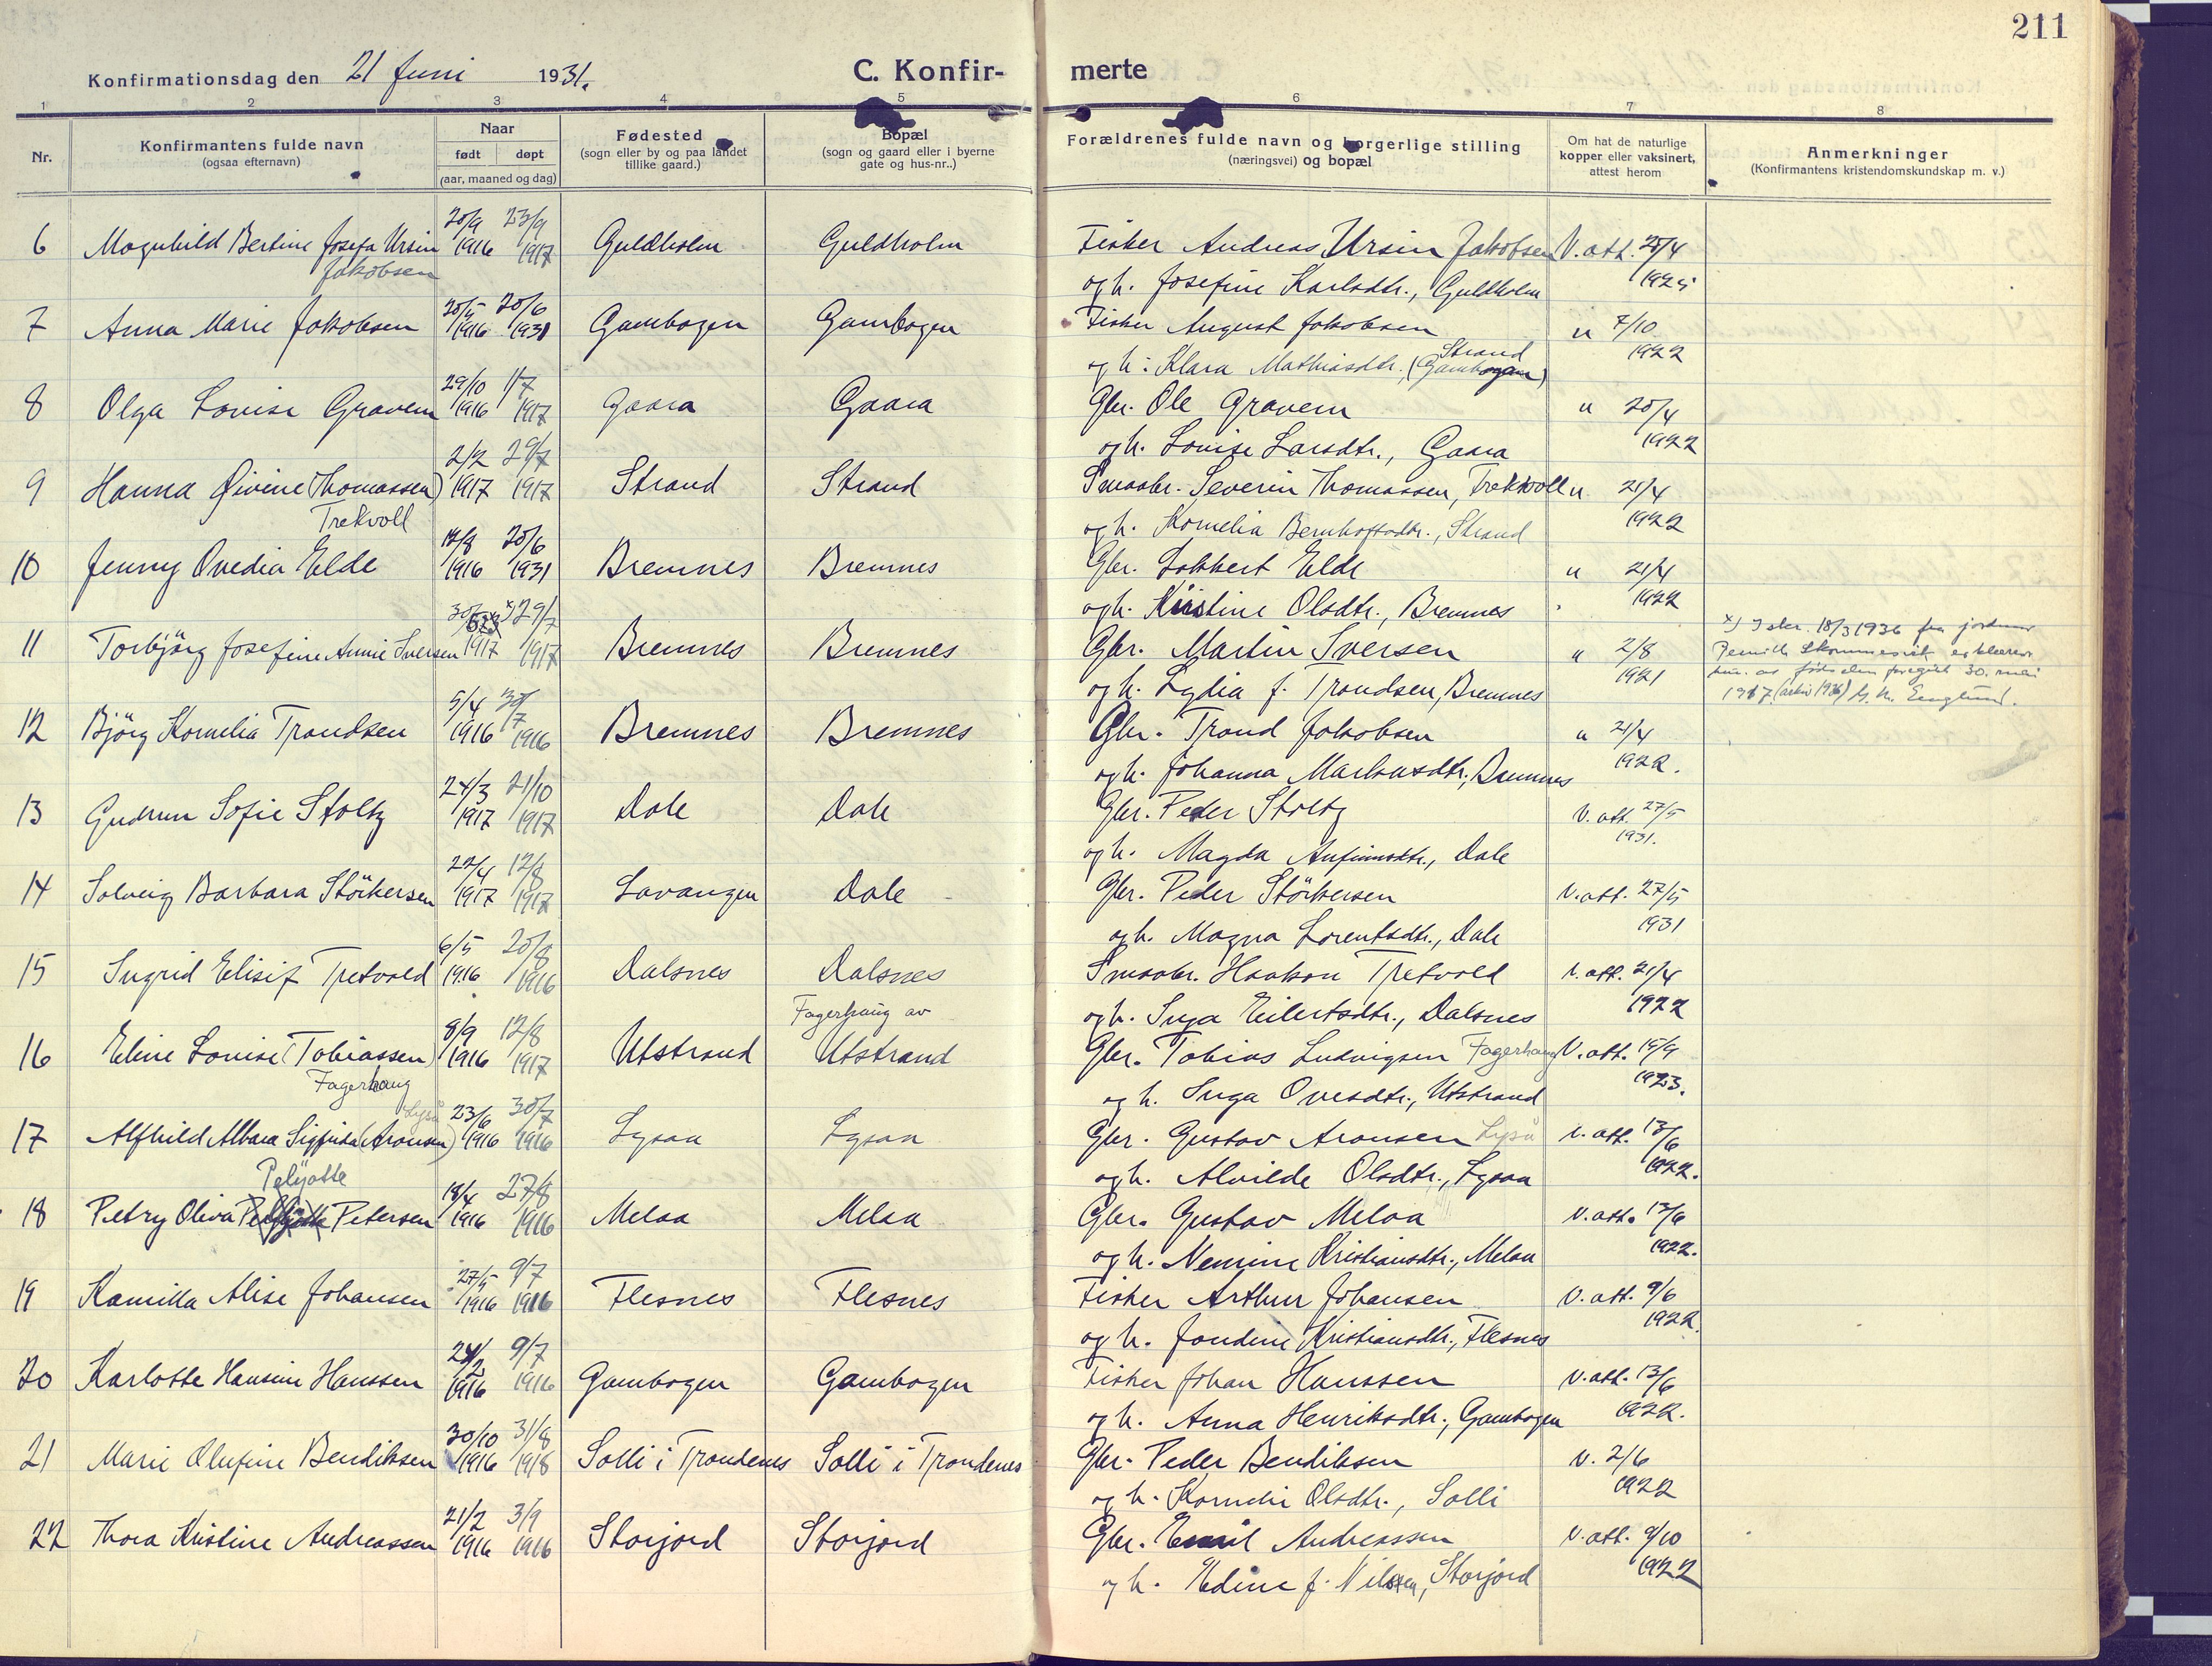 211
Konfirmationsdag den 21 Juni 1931.
C. Konfirmerte
1 2 3 4 5 6 7 8
Nr.
Konfirmantens fulde navn
(ogsaa efternavn)
Naar
født døpt
(aar, maaned og dag)
Fødested
(sogn eller by og paa landet
tillike gaard.)
Bopæl
(sogn og gaard eller i byerne
gate og hus-nr..)
Forældrenes fulde navn og borgerlige stilling
(næringsvei) og bopæl
Om hat de naturlige
kopper eller vaksinert,
attest herom
Anmerkninger
(Konfirmantens kristendomskundskap m. v.)
6 Magnhild Bertine Josefa Ursin 20/9 1916 23/9 1917 Guldholm Guldholm Fisker Andreas Ursin Jakobsen V. att. 25/4
Jakobsen og h. Josefine Karlsdtr., Guldholm 1925
7 Anna Marie Jakobsen 20/5 1916 20/6 1931 Gambogen Gambogen Fisker August Jakobsen " 7/10
og h: Klara Mathiasdtr. (Gambogen) Strand 1922
8 Olga Lovise Gravem 29/10 1916 1/7 1917 Gaara Gaara Gbr. Ole Gravem " 20/4
og h. Lovise Larsdtr., Gaara 1922
9 Hanna Øivine (Thomassen) 2/2 1917 29/7 1917 Strand Strand Smaabr. Severin Thomassen, Trekvoll " 21/4
Trekvoll og h. Kornelia Bernhoftsdtr., Strand 1922
10 Jenny Ovedia Elde 14/8 1916 20/6 1931 Bremnes Bremnes Gbr. Lokkert Elde " 21/4
og h. Kirstine Olsdtr., Bremnes 1922
11 Torbjörg Josefine Annie Iversen 30/5 x) 1917 29/7 1917 Bremnes Bremnes Gbr. Martin Iversen " 2/8
og h. Lydia f. Trondsen, Bremnes 1921
x) I skr. 18/3 1936 fra jordmor
Skommesvik erklærer
hun at fødselen foregikk 30. mai
1917. (arkiv 1936) Englund.
12 Björg Kornelia Trondsen 5/4 1916 30/7 1916 Bremnes Bremnes Gbr. Trond Jakobsen " 21/4
og h. Johanna Markusdtr., Bremnes 1922.
13 Gudrun Sofie Stoltz 24/3 1917 21/10 1917 Dale Dale Gbr. Peder Stoltz V. att. 27/5
og h. Magda Anfinnsdtr., Dale 1931.
14 Solveig Barbara Störkersen 22/4 1917 12/8 1917 Lavangen Dale Gbr. Peder Störkersen V. att. 27/5
og h. Magna Lorentsdtr., Dale 1931
15 Ingrid Elisif Tretvold 6/5 1916 20/8 1916 Dalsnes Dalsnes Smaabr. Haakon Tretvold V. att. 21/4
og h. Inga Eilertsdtr., Dalsnes 1922
Fagerhaug av
16 Eline Lovise (Tobiassen) 8/9 1916 12/8 1917 Utstrand Utstrand Gbr. Tobias Ludvigsen Fagerhaug V. att. 15/9
Fagerhaug og h. Inga Ovesdtr., Utstrand 1923.
Lyså
17 Alfhild Albara Sigfrida (Aronsen) 23/6 1916 30/7 1916 Lysaa Lysaa Gbr. Gustav Aronsen Lyså V. att. 13/6
og h. Alvilde Olsdtr., Lysaa 1922.
Pelijotte
18 Petry Oliva Petersen 18/4 1916 27/8 1916 Melaa Melaa Gbr. Gustav Melaa V. att. 13/6
og h. Nemine Kristiansdtr., Melaa 1922.
19 Kamilla Alise Johansen 27/5 1916 9/7 1916 Flesnes Flesnes Fisker Arthur Johansen V. att. 9/6
og h. Jondine Kristiansdtr., Flesnes 1922.
20 Karlotte Hansine Hanssen 24/2 1916 9/7 1916 Gambogen Gambogen Fisker Johan Hanssen V. att. 13/6
og h. Anna Henriksdtr., Gambogen 1922.
21 Marie Olufine Bendiksen 30/10 1916 31/8 1918 Solli i Trondenes Solli i Trondenes Gbr. Peder Bendiksen V. 2/6
og h. Kornelie Olsdtr., Solli 1922
22 Thora Kristine Andreassen 21/2 1916 3/9 1916 Storjord Storjord Gbr. Emil Andreassen V. att. 9/10
og h. Edine f. Nilsen, Storjord 1922